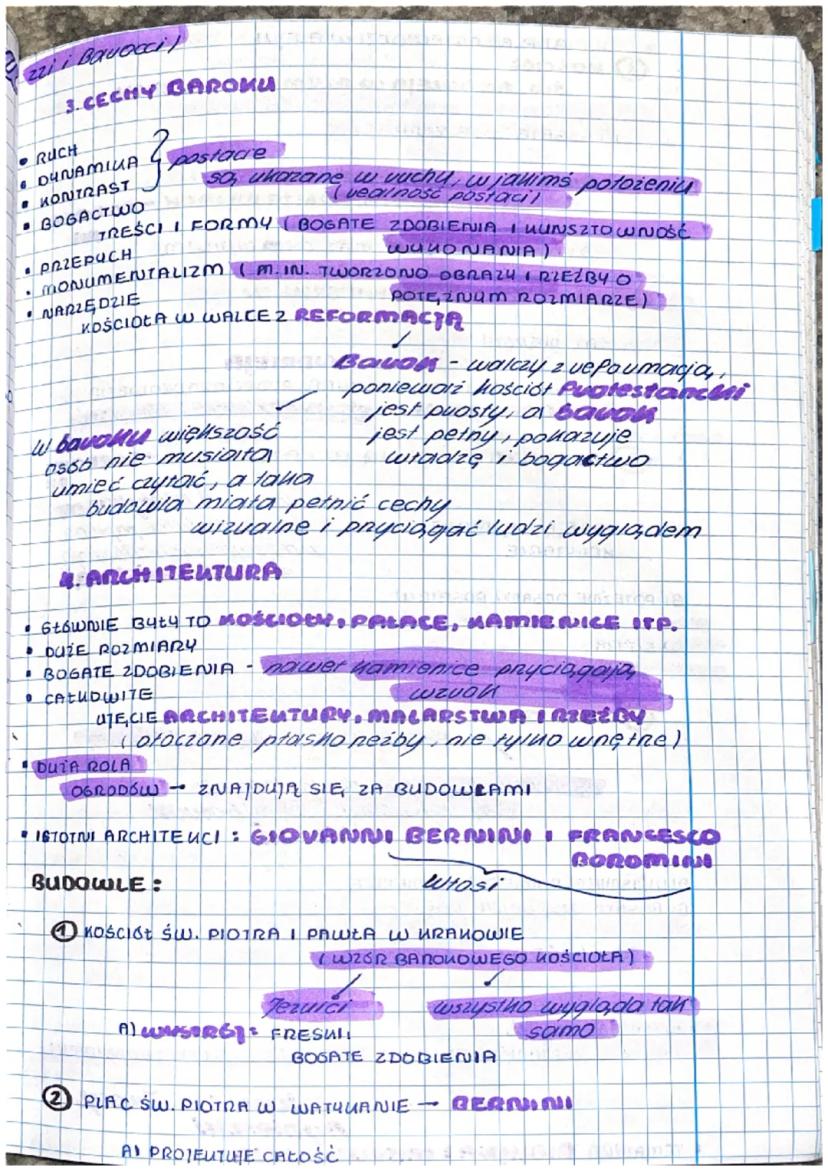 zzi i Barocci)
3. CECHY BAROKU
• RUCH
• DYNAMIKA
• KONTRAST
postacie
są ukazane w ruchu, w jakimś położeniu
(realność postaci)
• BOGACTWO
TREŚCI I FORMY (BOGATE ZDOBIENIA I KUNSZTOWNOŚĆ
WYKONANIA)
• PRZEPYCH
• MONUMENTALIZM (M.IN. TWORZONO OBRAZY I RZEŹBY O
POTĘŻNYM ROZMIARZE)
• NARZĘDZIE
KOŚCIOŁA W WALCE Z REFORMACJĄ
Barok - walczy z reformacją,
ponieważ kościół Protestancki
jest prosty, a barok
jest pełny, pokazuje
władzę i bogactwo
W baroku większość
osób nie musiała
umieć czytać, a taka
budowla miała pełnić cechy
wizualne i przyciągać ludzi wyglądem
4. ARCHITEKTURA
• GŁÓWNIE BYŁY TO KOŚCIOŁY, PAŁACE, KAMIENICE ITP.
• DUŻE ROZMIARY
• BOGATE ZDOBIENIA - nawet kamienice przyciągają
wzrok
• CAŁKOWITE
UJĘCIE ARCHITEKTURY, MALARSTWA I RZEŹBY
(otoczone płaskorzeźby, nie tylko wnętrze)
• DUŻA ROLA
OGRODÓW → ZNAJDUJĄ SIĘ ZA BUDOWLAMI
• ISTOTNI ARCHITEKCI : GIOVANNI BERNINI I FRANCESCO
BOROMINI
Włosi
BUDOWLE :
① KOŚCIÓŁ ŚW. PIOTRA I PAWŁA W KRAKOWIE
(WZÓR BAROKOWEGO KOŚCIOŁA)
Jezuici
wszystko wygląda tak
samo
A) WYSTRÓJ: FRESKI,
BOGATE ZDOBIENIA
② PLAC ŚW. PIOTRA W WATYKANIE → BERNINI
A) PROJEKTUJE CAŁOŚĆ